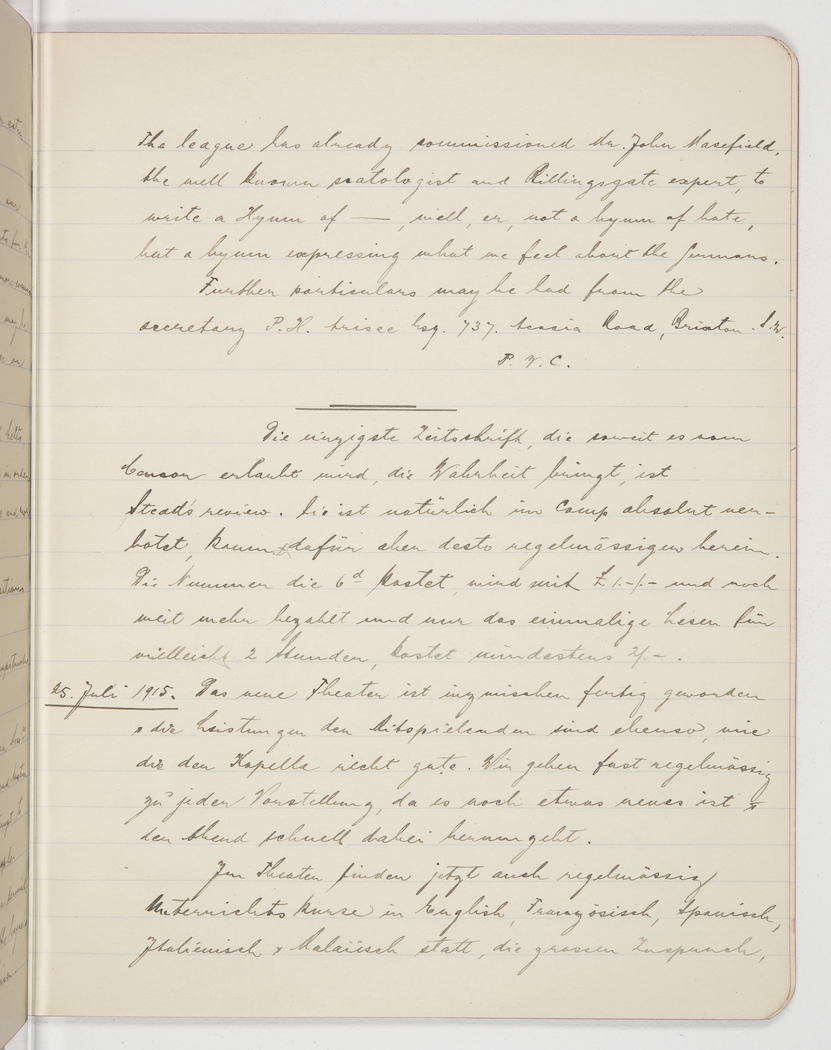 The league has already commissioned Mr. John Masefield,
the well known scatologist and Billingsgate expert, to
write a Hymn of —, well, er, not a hymn of hate,
but a hymn expressing what we feel about the Germans.
Further particulars may be had from the
secretary P. H. Esq. 737. Acacia Road, Brixton. S.W.
P. V. C.
Die einzigste Zeitschrift, die soweit es vom
Censor erlaubt wird, die Wahrheit bringt, ist
Stead's review. Sie ist natürlich im Camp absolut ver-
botet, kommt dafür aber desto regelmässiger herein.
Die Nummer die 6d kostet, wird mit £ 1.-.- und noch
weit mehr bezahlt und nur das einmalige Lesen für
vielleicht 2 Stunden, kostet mindestens 2/-.
25. Juli 1915. Das neue Theater ist inzwischen fertig geworden
& die Leistungen der Mitspielenden sind ebenso, wie
die der Kapelle recht gute. Wir gehen fast regelmässig
zu jeder Vorstellung, da es noch etwas neues ist &
der Abend schnell dabei herumgeht.
Im Theater finden jetzt auch regelmässig
Unterrichtskurse in English, Französisch, Spanisch,
Italienisch & Malaiisch statt, die grossen Zuspruch,